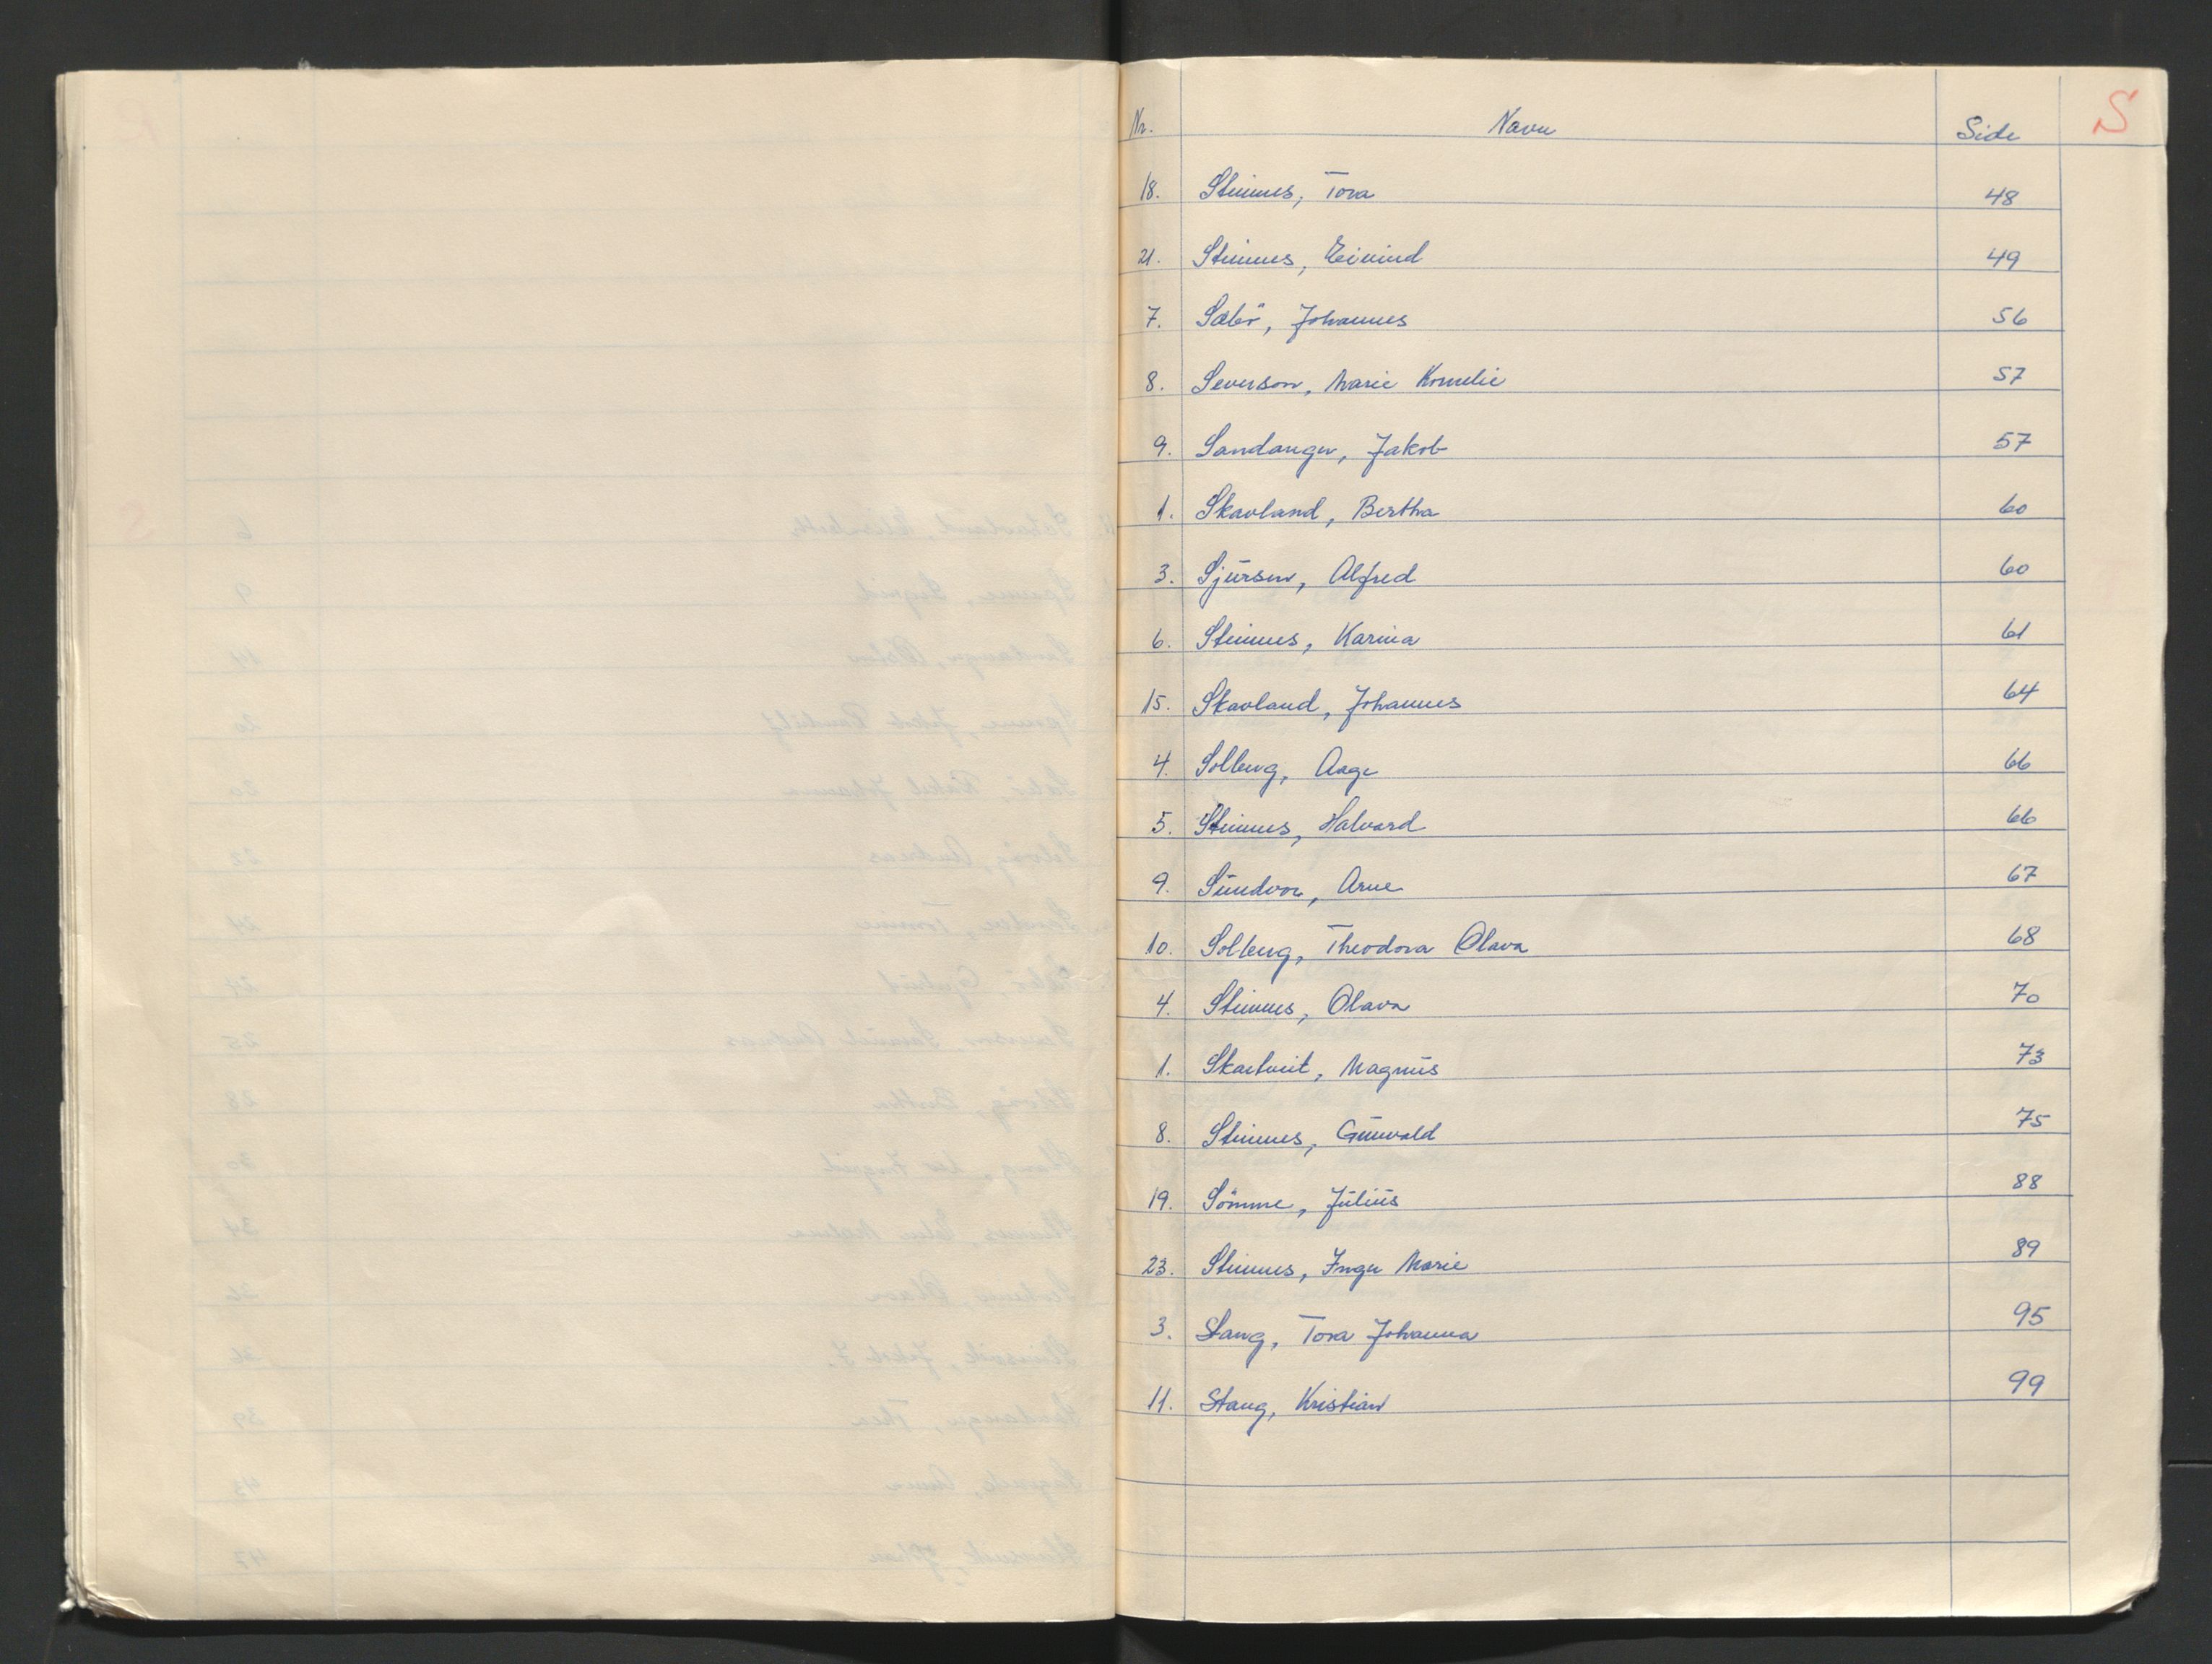 Nr. Navn Side S
18. Steinnes, Tora 48
21. Steinnes, Eivind 49
7. Sæbö, Johannes 56
8. Severson, Marie Kornelie 57
9. Sandanger, Jakob 57
1. Skavland, Bertha 60
3. Sjursen, Alfred 60
6. Steinnes, Karina 61
15. Skavland, Johannes 64
4. Solberg, Aage 66
5. Steinnes, Halvard 66
9. Sundvor, Arne 67
10. Solberg, Theodora Olava 68
4. Steinnes, Olava 70
1. Skartveit, Magnus 73
8. Steinnes, Gunvald 75
19. Sömme, Julius 88
23. Steinnes, Inger Marie 89
3. Stang, Tora Johanna 95
11. Stang, Kristian 99